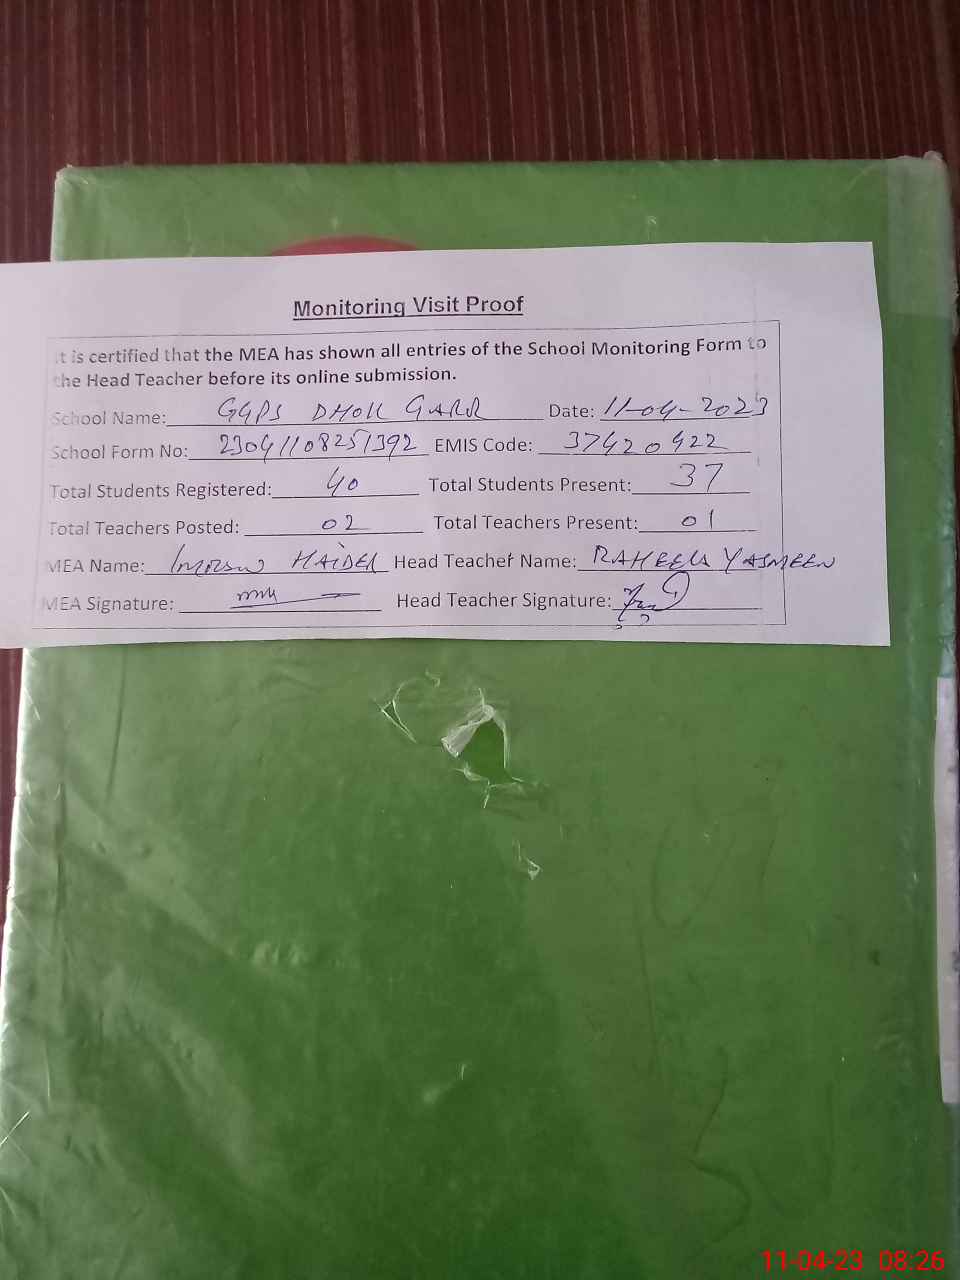 Monitoring Visit Proof
It is certified that the MEA has shown all entries of the School Monitoring Form to
the Head Teacher before its online submission.
School Name: GGPS DHOK GARR Date: 11-04-2023
School Form No: 23041108251392 EMIS Code: 37420422
Total Students Registered: 40 Total Students Present: 37
Total Teachers Posted: 02 Total Teachers Present: 01
MEA Name: Imran HAIDER Head Teacher Name: RAHEELA YASMEEN
MEA Signature: Head Teacher Signature:
11-04-23 08:26